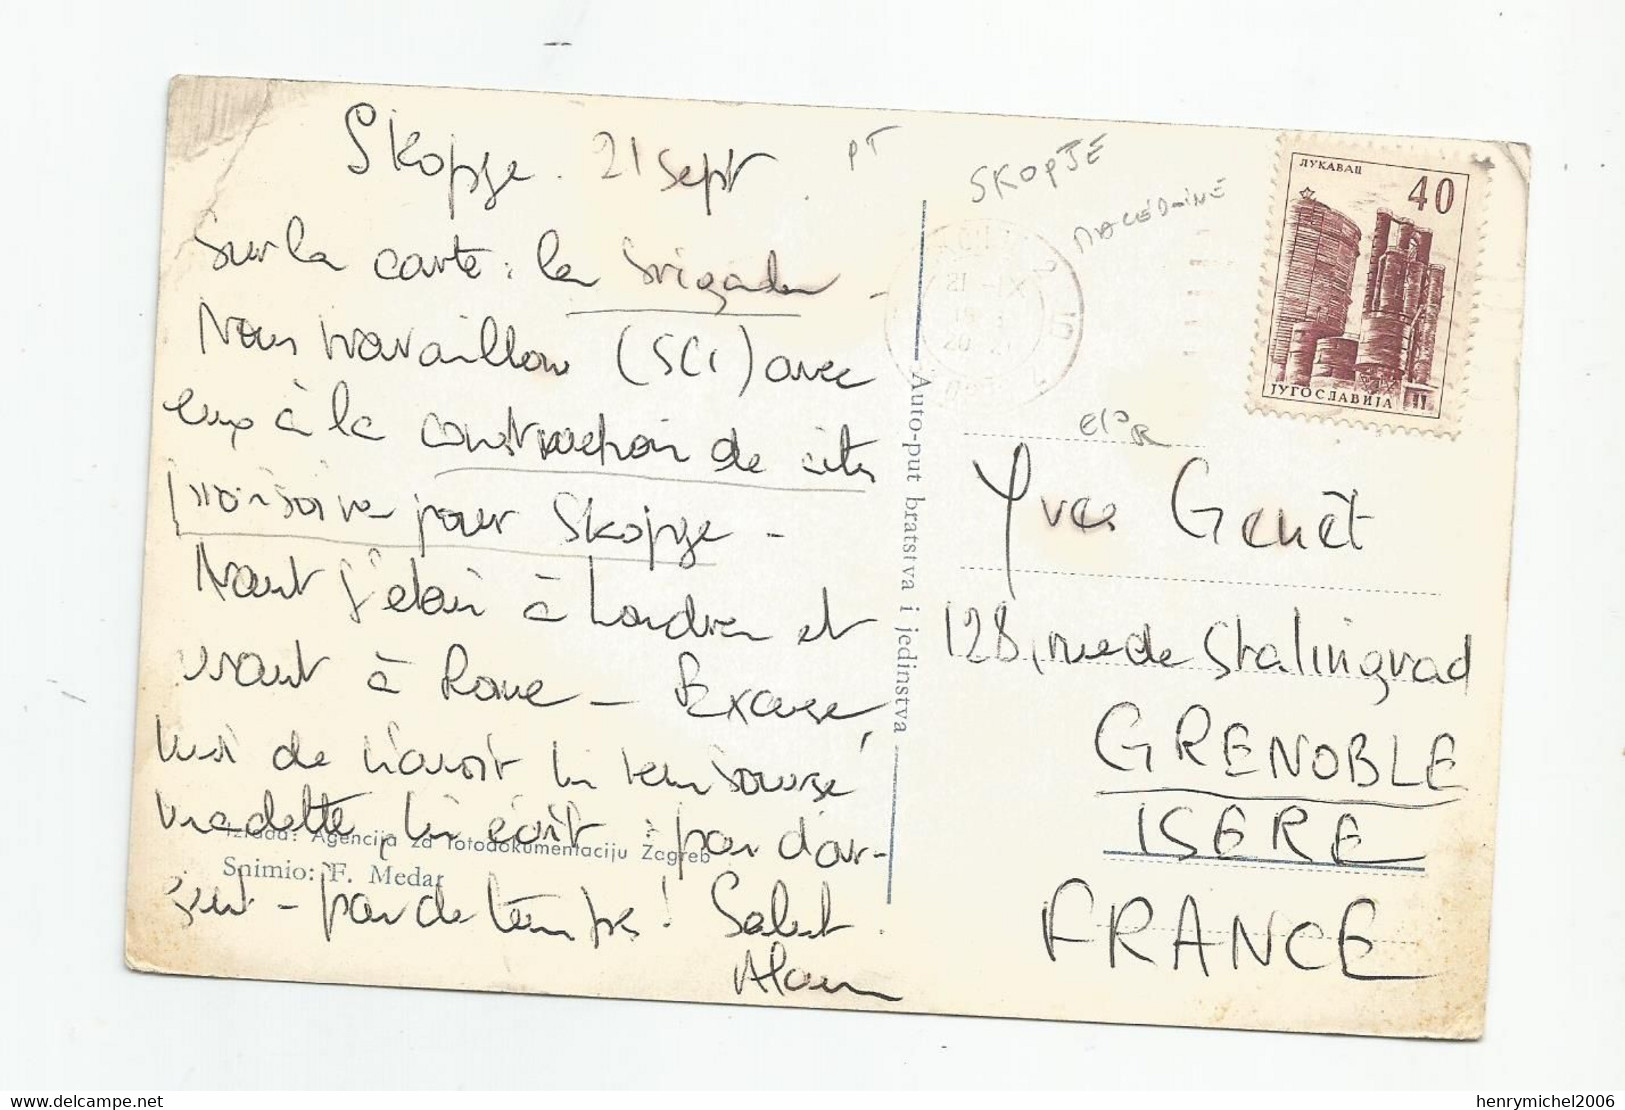 Skopje. 21 sept.
Sur la carte : les brigades -
Nous travaillons (SCI) avec
eux à la construction de cités
provisoires pour Skopje -
Avant j'étais à Londres et
avant à Rome - Excuse
moi de n'avoir ni remboursé
vedette, ni écrit : pas d'ar-
gent - pas de temps ! Salut.
Alain
Izrada: Agencija za fotodokumentaciju Zagreb
Snimio: F. Medar
Auto-put bratstva i jedinstva
PT
SKOPJE
MACÉDOINE
ЛУКАВАЦ
40
ЈУГОСЛАВИЈА
Yves Genêt
128, rue de Stalingrad
GRENOBLE
ISERE
FRANCE
henrymichel2006